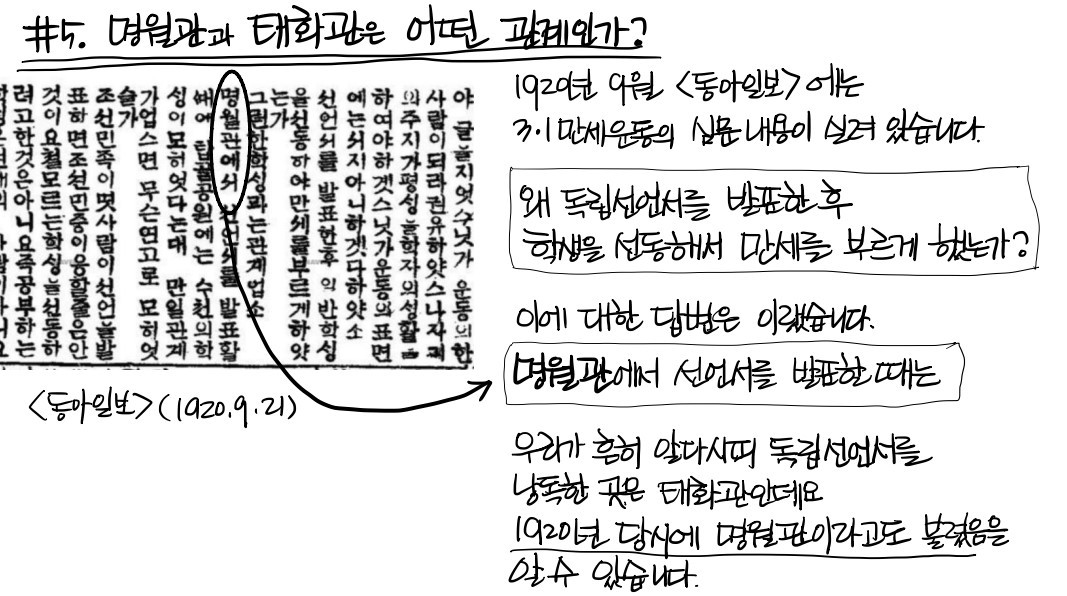 #5. 명월관과 태화관은 어떤 관계인가?
야 글을지엇스닛가 운동의한
사람이되라권유하얏스나자긔
의주지가평싱을학자의성활을
하여야하겟스닛가운동의표면
에는서지아니하겟다하얏소
선언서를 발표한후 의 반학싱
을선동하야만세를부르게하얏
는가
그런한학싱과는관계업소
명월관에서 선언서를 발표할
때에 탑골공원에는 수천의학
싱이모히엇다는대 만일관계
가업스면 무슨연고로 모히엇
슬가
조선민족이몃사람이선언을발
표하면조선민중이응할줄은안
것이요철모르는학싱을선동하
려고한것은아니요족공부하는
<동아일보>(1920.9.21)
1920년 9월 <동아일보>에는
3·1 만세운동의 심문 내용이 실려 있습니다.
왜 독립선언서를 발표한 후
학생을 선동해서 만세를 부르게 했는가?
이에 대한 답변은 이랬습니다.
명월관에서 선언서를 발표한 때는
우리가 흔히 알다시피 독립선언서를
낭독한 곳은 태화관인데요
1920년 당시에 명월관이라고도 불렸음을
알 수 있습니다.